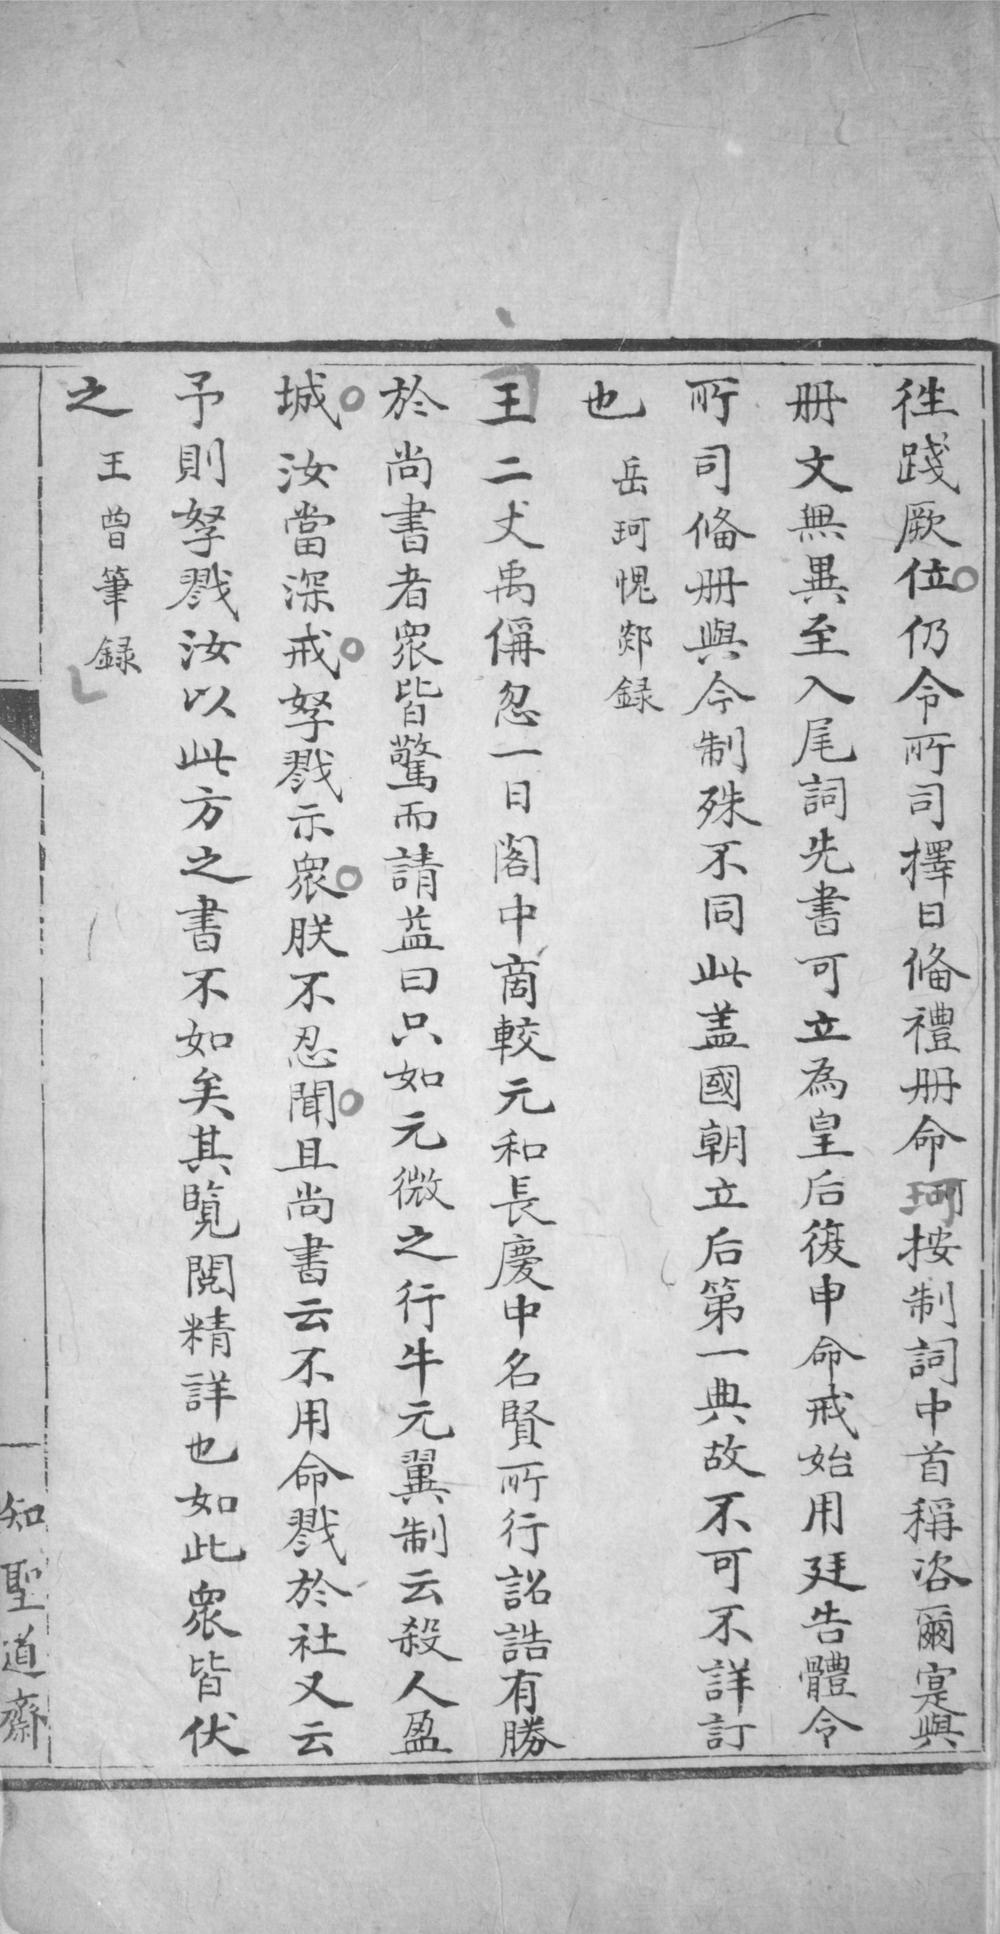 徃踐厥位仍令所司擇日俻禮册命珂按制詞中首稱咨爾寔與
册文無異至入尾詞先書可立為皇后復申命戒始用廷告體令
所司俻册與今制殊不同此盖國朝立后第一典故不可不詳訂
也 岳珂愧郯録
王二丈禹偁忽一日閣中商較元和長慶中名賢所行詔誥有勝
於尚書者衆皆驚而請益曰只如元微之行牛元翼制云殺人盈
城汝當深戒孥戮示衆朕不忍聞且尚書云不用命戮於社又云
予則孥戮汝以此方之書不如矣其覽閲精詳也如此衆皆伏
之 王曾筆録
知聖道齋